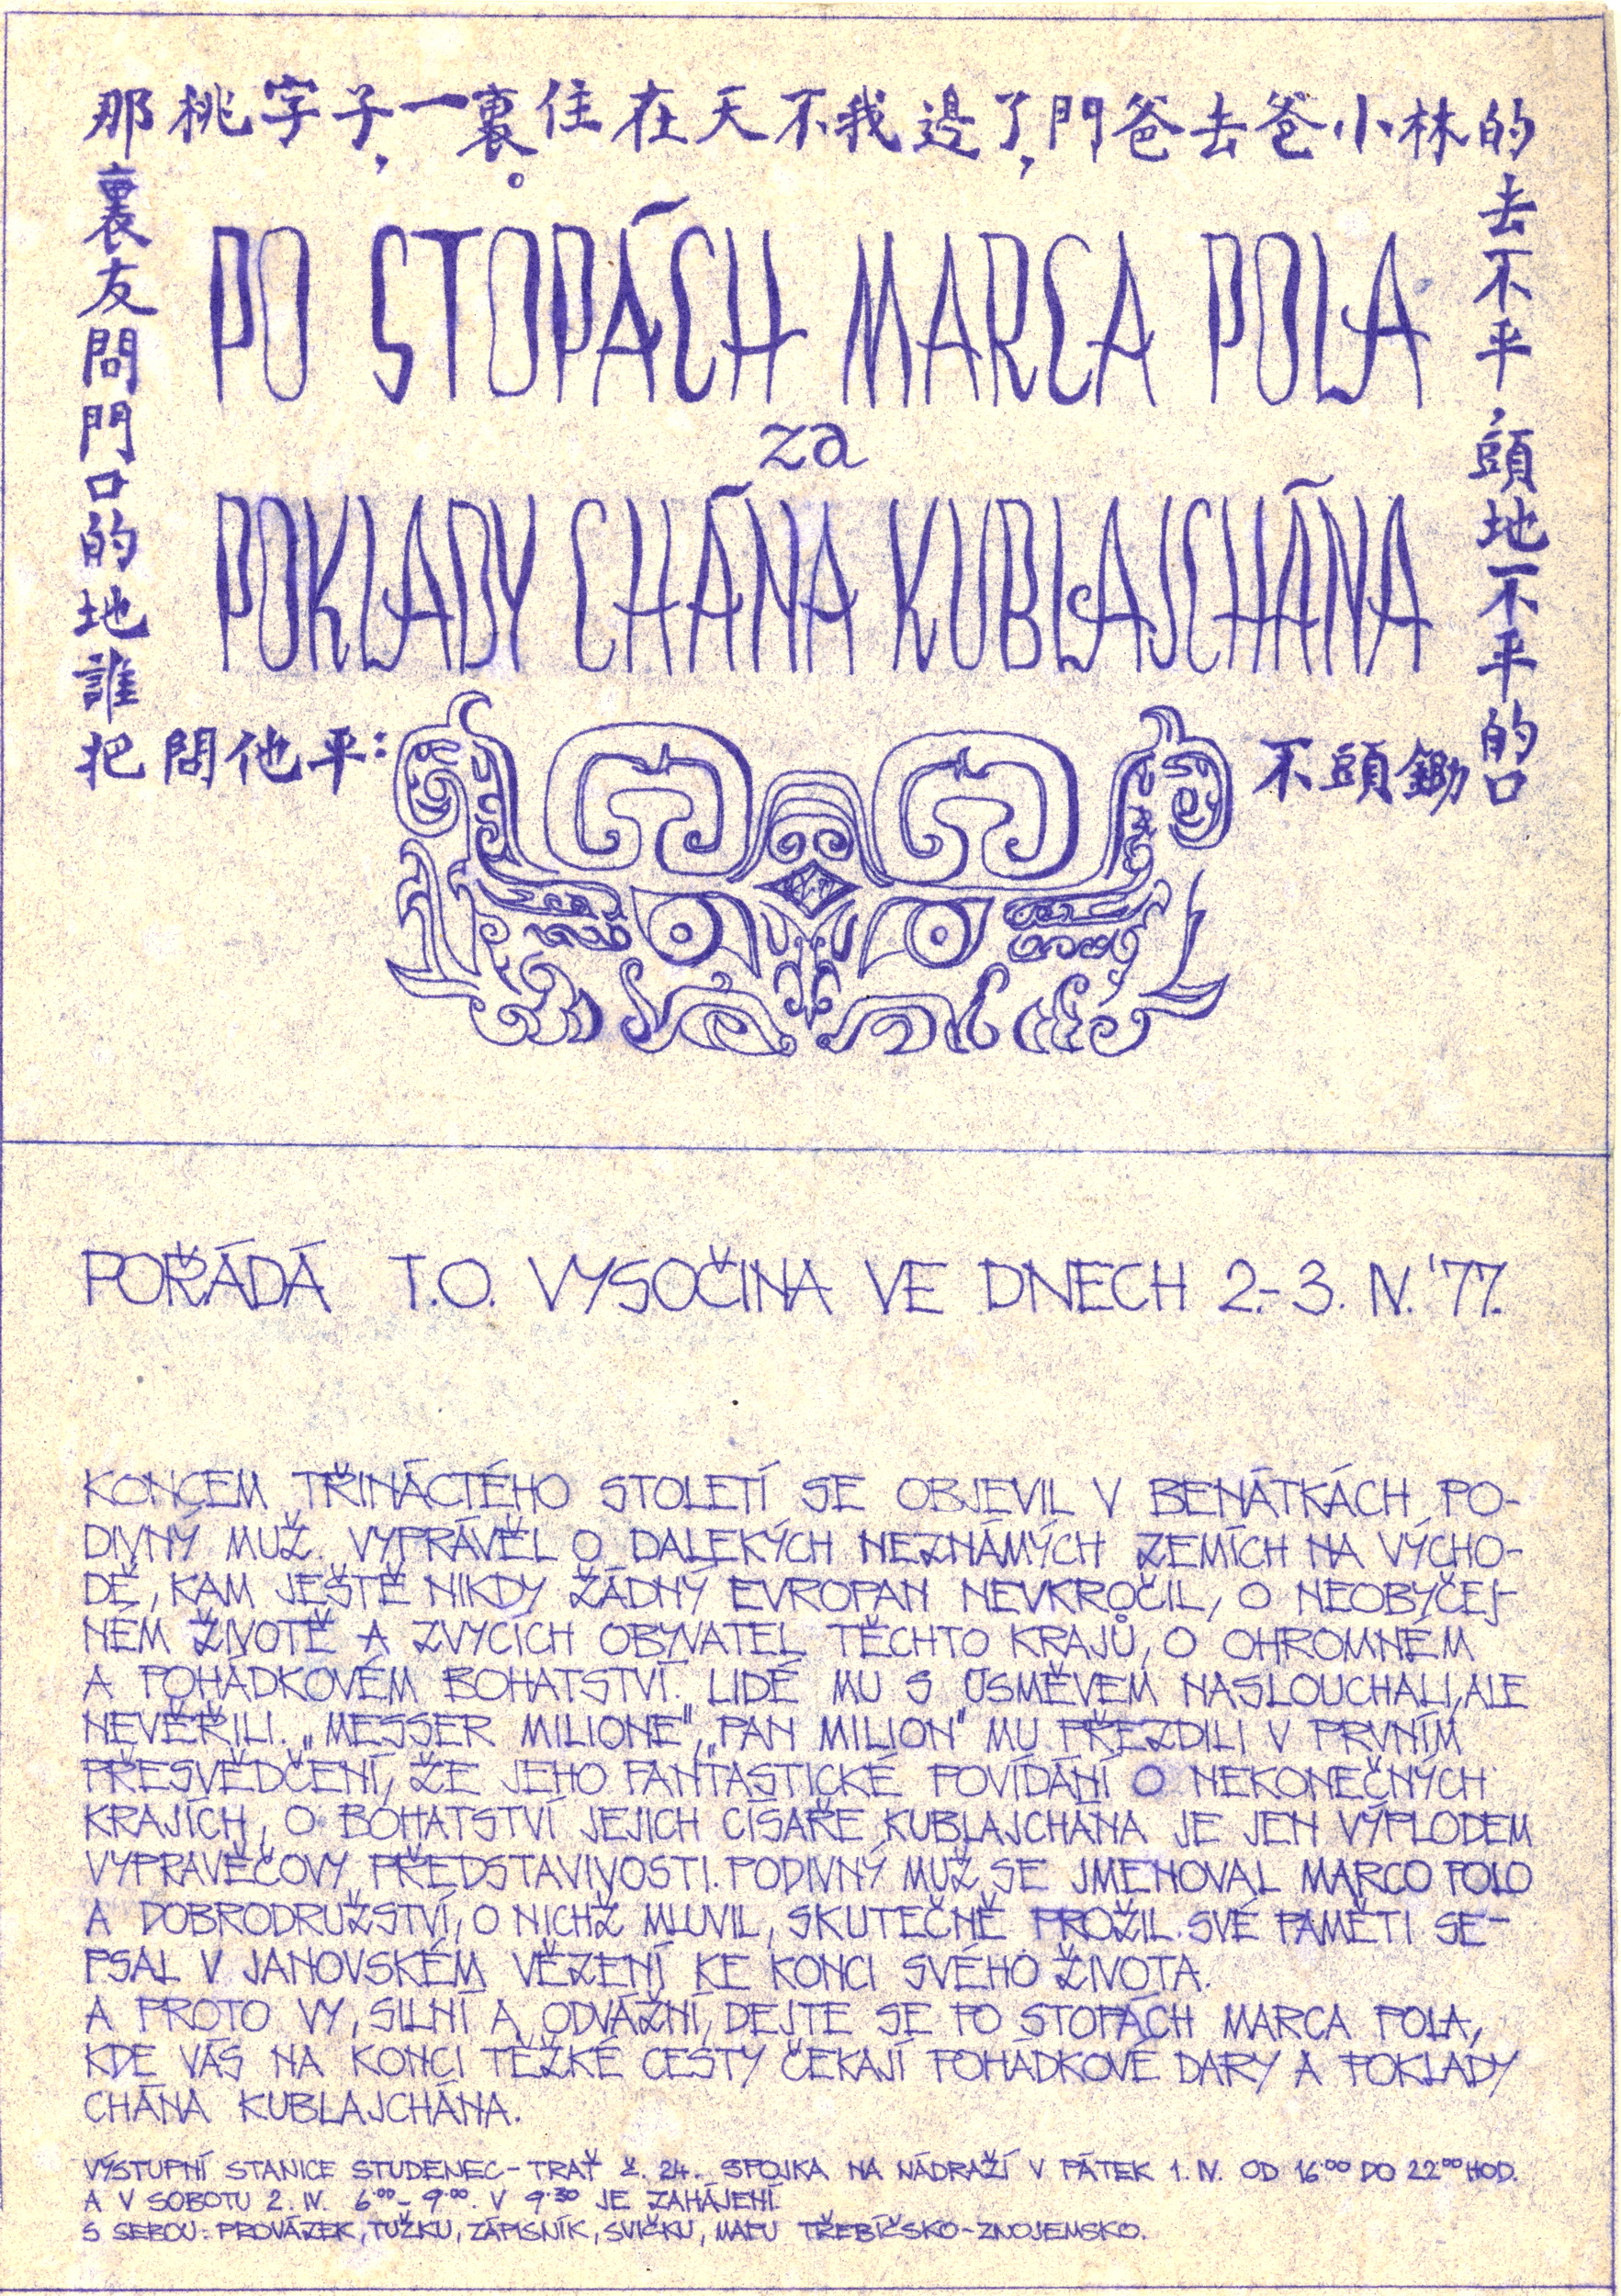 那桃字子,一裏。住在天不我邊了,門爸去爸小林的
裏友問門口的地誰
去不平,頭地不平的口
PO STOPÁCH MARCA POLA
za
POKLADY CHÁNA KUBLAJCHÁNA
把問他平:
不頭鋤
POŘÁDÁ T.O. VYSOČINA VE DNECH 2.-3. IV. '77.
KONCEM TŘINÁCTÉHO STOLETÍ SE OBJEVIL V BENÁTKÁCH PO-
DIVNÝ MUŽ. VYPRÁVĚL O DALEKÝCH NEZNÁMÝCH ZEMÍCH NA VÝCHO-
DĚ, KAM JEŠTĚ NIKDY ŽÁDNÝ EVROPAN NEVKROČIL, O NEOBYČEJ-
NÉM ŽIVOTĚ A ZVYCÍCH OBYVATEL TĚCHTO KRAJŮ, O OHROMNÉM
A POHÁDKOVÉM BOHATSTVÍ. LIDÉ MU S ÚSMĚVEM NASLOUCHALI, ALE
NEVĚŘILI. „MESSER MILIONE", „PAN MILION" MU PŘEZDILI V PRVNÍM
PŘESVĚDČENÍ, ŽE JEHO FANTASTICKÉ POVÍDÁNÍ O NEKONEČNÝCH
KRAJÍCH, O BOHATSTVÍ JEJICH CÍSAŘE KUBLAJCHÁNA JE JEN VÝPLODEM
VYPRAVĚČOVY PŘEDSTAVIVOSTI. PODIVNÝ MUŽ SE JMENOVAL MARCO POLO
A DOBRODRUŽSTVÍ, O NICHŽ MLUVIL, SKUTEČNĚ PROŽIL. SVÉ PAMĚTI SE-
PSAL V JANOVSKÉM VĚZENÍ KE KONCI SVÉHO ŽIVOTA.
A PROTO VY, SILNÍ A ODVÁŽNÍ, DEJTE SE PO STOPÁCH MARCA POLA,
KDE VÁS NA KONCI TĚŽKÉ CESTY ČEKAJÍ POHÁDKOVÉ DARY A POKLADY
CHÁNA KUBLAJCHÁNA.
VÝSTUPNÍ STANICE STUDENEC - TRAŤ Č. 24. SPOJKA NA NÁDRAŽÍ V PÁTEK 1. IV. OD 16⁰⁰ DO 22⁰⁰ HOD.
A V SOBOTU 2. IV. 6⁰⁰ - 9⁰⁰. V 9³⁰ JE ZAHÁJENÍ.
S SEBOU: PROVÁZEK, TUŽKU, ZÁPISNÍK, SVÍČKU, MAPU TŘEBÍČSKO-ZNOJEMSKO.